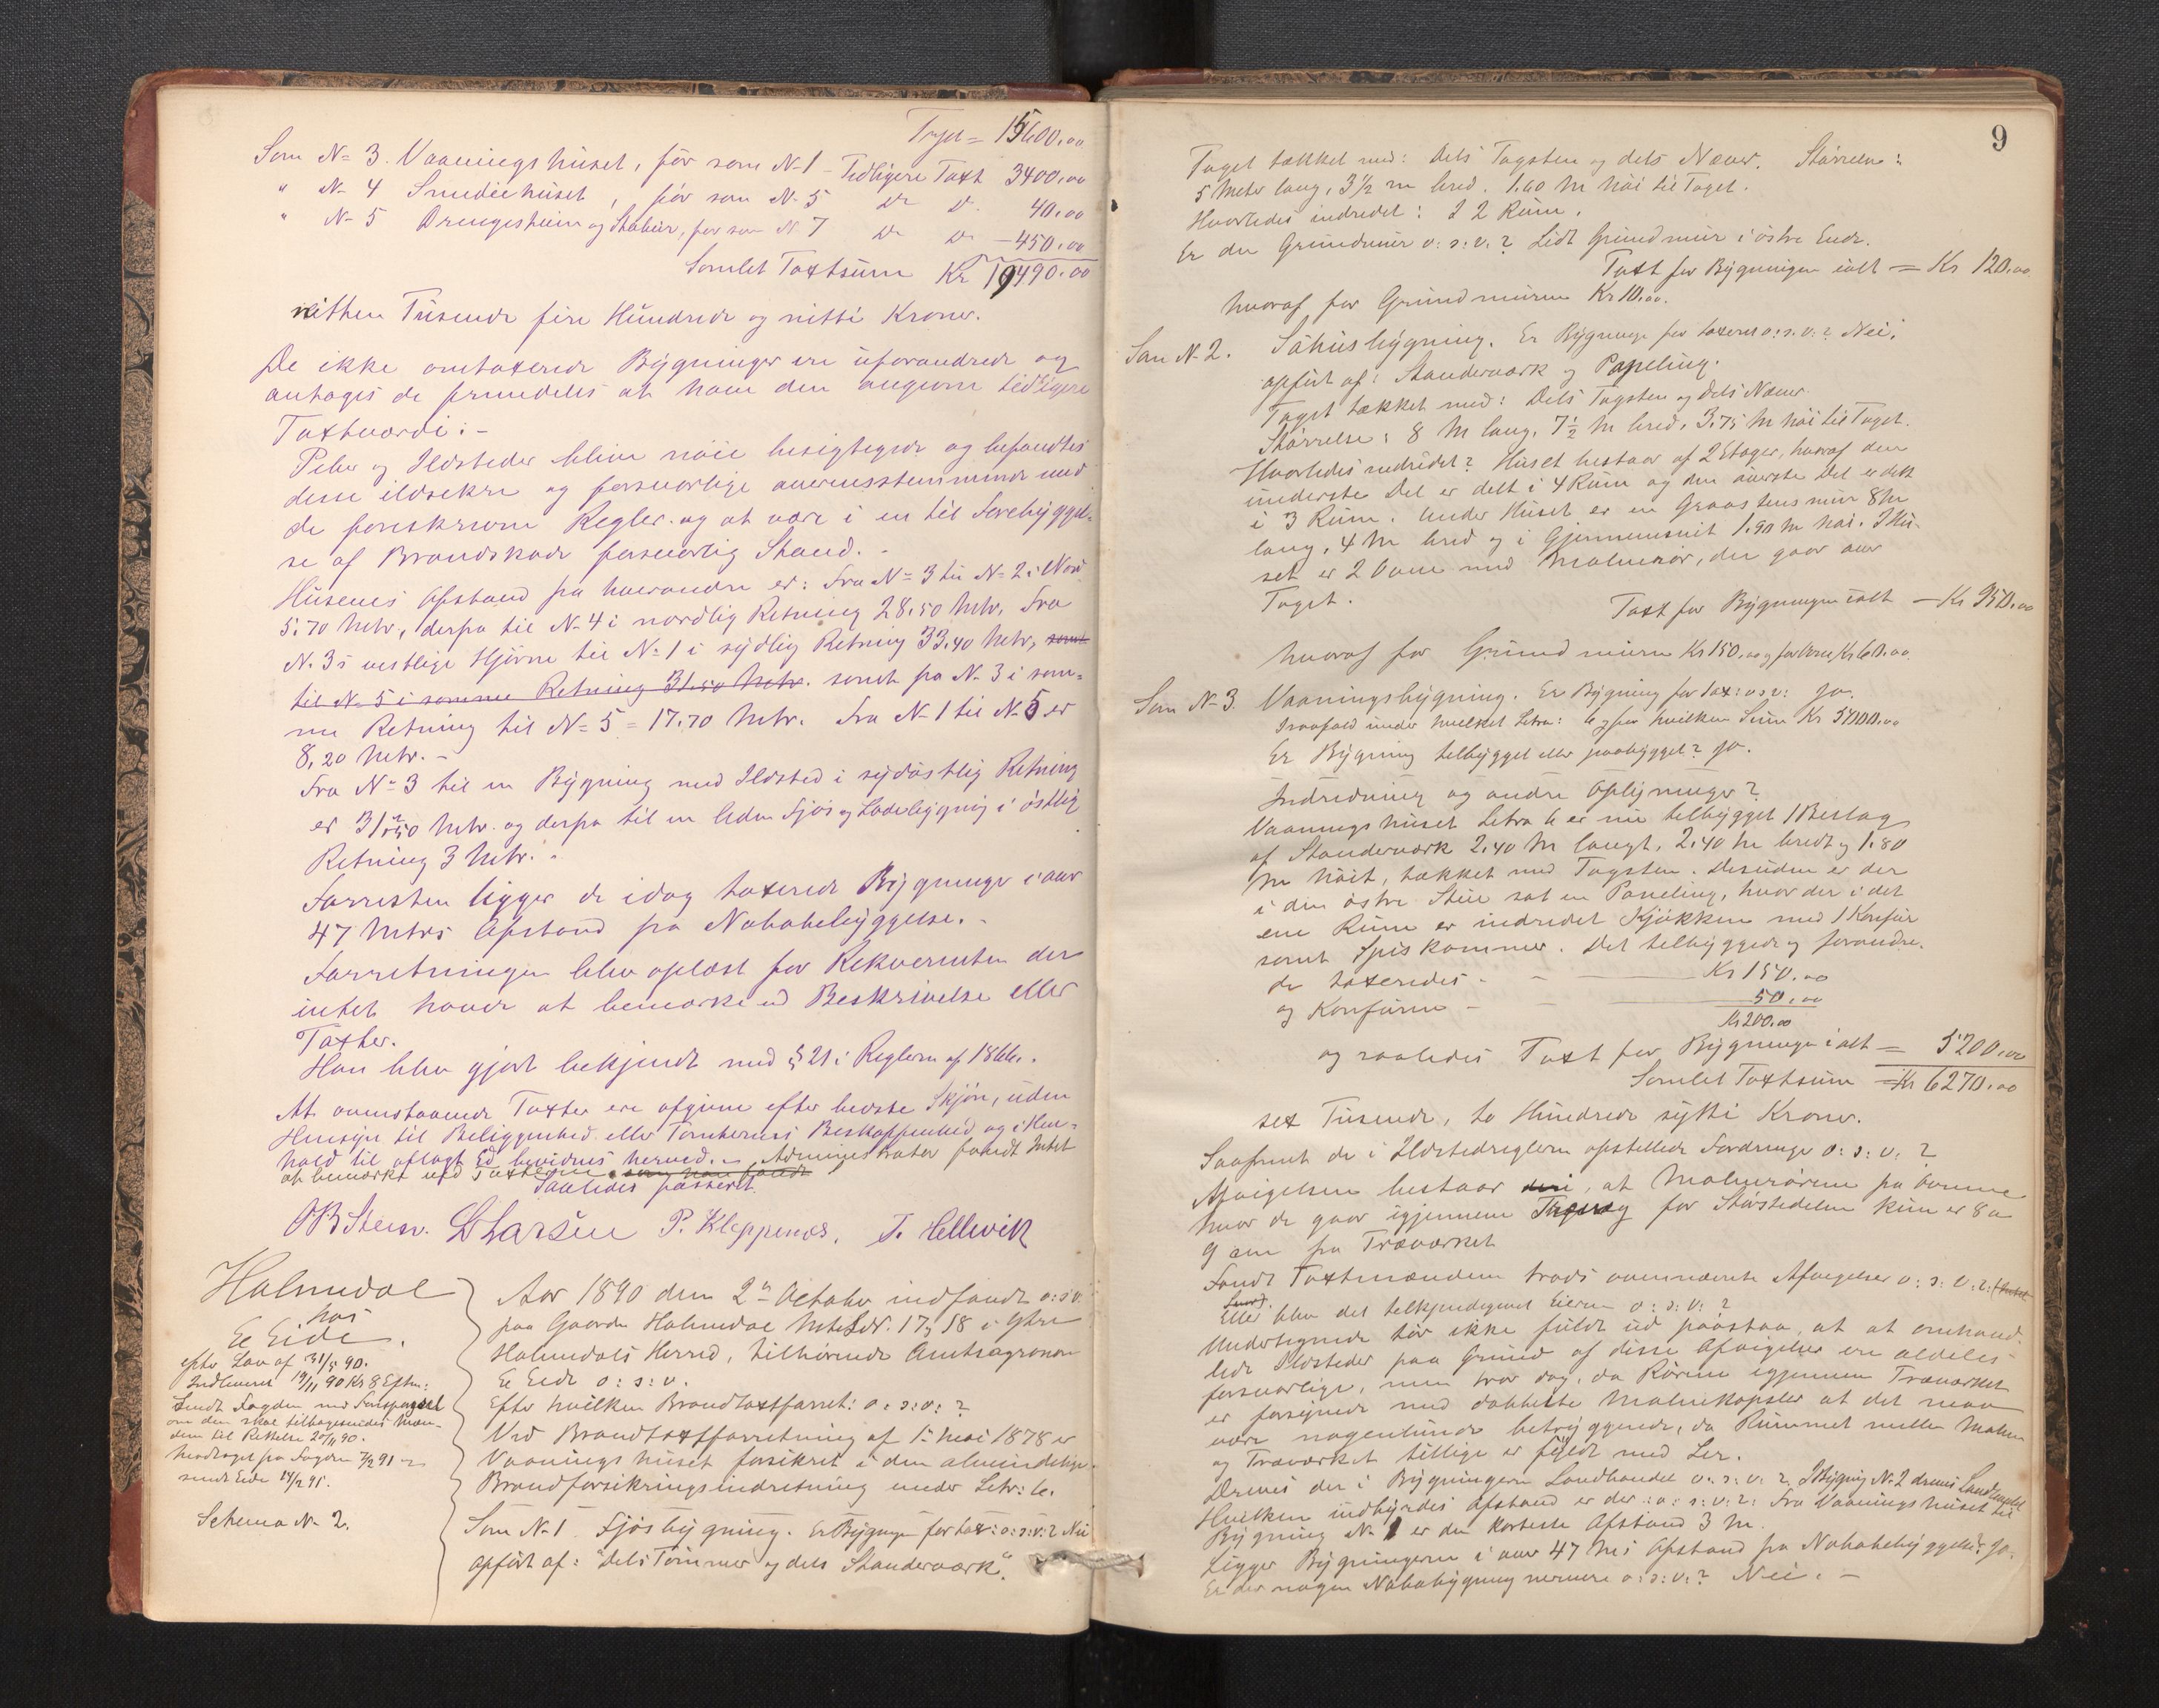 Trpt = 15600.00
Som N= 3. Vaaningshuset, før som N=1 - Tidligere Taxt 3400.00
" N= 4 Smediehuset, før som N=5 Do Do 40.00
" N= 5 Drengeskuen og Stabur, før som N 7 Do Do - 450.00
Samlet Taxtsum Kr 19490.00
nitten Tusende fire Hundrede og nitti Kroner.
De ikke omtaxerede Bygninger ere uforandrede og
antages de fremdeles at have den angivne tidligere
Taxtværdi. -
Piber og Ildsteder bleve nøie besigtigede og befandtes
dem ildsikre og forsvarlige overensstemmende med
de foreskrevne Regler og at være i en til Forebyggel-
se af Brandskade forsvarlig Stand. -
Husenes Afstand fra hverandre er: Fra N= 3 til N= 2 i Nord
5.70 Metr, derfra til N=4 i nordlig Retning 28.50 Metr. Fra
N.3s vestlige Hjørne til N=1 i sydlig Retning 33.40 Metr, samt
til N= 5 i samme Retning 31.50 Metr. samt fra N=3 i sam-
me Retning til N=5 = 17.70 Metr. Fra N=1 til N=5 er
8,20 Metr. -
Fra N=3 til en Bygning med Ildsted i sydøstlig Retning
er 31.50 Metr. og derfra til en liden Fjøs og Ladebygning i østlig
Retning 3 Metr. -
Forresten ligger de idag taxerede Bygninger i over
47 Metrs Afstand fra Nabobebyggelse. -
Forretningen blev oplæst for Rekvirenten der
intet havde at bemærke ved Beskrivelse eller
Taxter.
Han blev gjort bekjendt med § 21 i Reglerne af 1866.
At ovenstaaende Taxter ere afgivne efter bedste Skjøn, uden
Hensyn til Beliggenhed eller Tomternes Beskaffenhed og i Hen-
hold til aflagt Ed bevidnes herved. - Administrator fandt Intet
at bemærke ved Taxterne som han fandt
Saaledes passeret.
OB Steen. L Larsen P. Kleppenes. T. Hellevik
Holmedal
hos
E Eide.
efter Lov af 31/5 90.
Indleveret 19/11 90 Kr 8 Eftm:
Sendt Fogden med Forespørgsel
om den skal tilbagesendes Mæn-
dene til Rettelse 20/11 90.
Modtaget fra Fogden 7/2 91
sendt Eide 14/2 91.
Schema N=2.
Aar 1890 den 2n October indfandt o:s:v.
paa Gaarden Holmedal MtrLNr. 17, 18 i Ytre
Holmedals Herred, tilhørende Amtsagronom
E Eide o:s:v.
Efter hvilken Brandtaxtforret: o:s:v:?
Ved Brandtaxtforretning af 1n Mai 1878 er
Vaaningshuset forsikret i den almindelige
Brandforsikringsindretning under Letr: b.
Som N=1 Fjøsbygning. Er Bygningen før tax: o:s:v:? Nei
opført af: "Dels Tømmer og dels Standerværk".
9
Taget tækket med: Dels Tagsten og dels Næver. Størrelse:
5 Meter lang, 3½ m bred. 1.60 M høi til Taget.
Hvorledes indredet: I 2 Rum.
Er der Grundmur o:s:v:? Lidt Grundmur i østre Ende.
Taxt for Bygningen ialt = Kr 120.00
hvoraf for Grundmuren Kr 10.00.
Som N=2. Søhusbygning. Er Bygningen før taxeret o:s:v:? Nei.
opført af: Standerværk og Papeling.
Taget tækket med: Dels Tagsten og Dels Næver.
Størrelse: 8 M lang, 7½ M bred, 3.75 M høi til Taget.
Hvorledes indredet? Huset bestaar af 2 Etager, hvoraf den
underste Del er delt i 4 Rum og den øverste Del er delt
i 3 Rum. Under Huset er en Graastensmur 8 M
lang, 4 M bred og i Gjennemsnit 1.90 M høi. I Hu-
set er 2 Ovne med Malmrør, der gaar over
Taget.
Taxt for Bygningen ialt - Kr 950.00
hvoraf for Grundmuren Kr 150.00 og for Ovne Kr 60.00.
Som N=3. Vaaningsbygning. Er Bygning før tax: o:s:v: Ja.
Isaafald under hvilket Letra: b og for hvilken Sum Kr 5000.00
Er Bygning tilbygget eller paabygget? Ja.
Indredning og andre Oplysninger?
Vaaningshuset Letra b er nu tilbygget 1 Beslag
af Standerværk 2.40 M langt, 2.40 M bredt og 1.80
M høit, tækket med Tagsten. Desuden er der
i den østre Stue sat en Paneling, hvor der i det
ene Rum er indredet Kjøkken med 1 Komfur
samt Spiskammer. Det tilbyggede og forandre-
de taxeredes - Kr 150.00
og Komfuren - 50.00
Kr 200.00
og saaledes Taxt for Bygningen ialt = 5200.00
Samlet Taxtsum = Kr 6270.00
sex Tusende, to Hundrede sytti Kroner.
Saafremt de i Ildstedreglerne opstillede Fordringer o:s:v:?
Afvigelsen bestaar deri, at Malmrørene fra Ovnene
hvor de gaar igjennem Tag og for Størstedelen kun er 8 a
9 cm fra Træværket
Fandt Taxtmændene trods ovennævnte Afvigelser o:s:v:?
Eller blev det tilkjendegivet Eieren o:s:v:?
Undertegnede tør ikke fuldt ud paastaa, at omhand-
lede Ildsteder paa Grund af disse Afvigelser ere aldeles
forsvarlige, men tror dog, da Rørene igjennem Træværket
er forsynede med dobbelte Malmkapsler at det maa
være nogenlunde betryggende, da Rummet mellem Malm
og Træværket tillige er fyldt med Ler.
Drives der i Bygningerne Landhandel o:s:v:? I Bygning N=2 drives Landhandel
Hvilken indbyrdes Afstand er der: o:s:v:?: Fra Vaaningshuset til
Bygning N=1 er den korteste Afstand 3 M.
Ligger Bygningerne i over 47 M's Afstand fra Nabobebyggelse? Ja.
Er der nogen Nabobygning nærmere o:s:v:? Nei. -